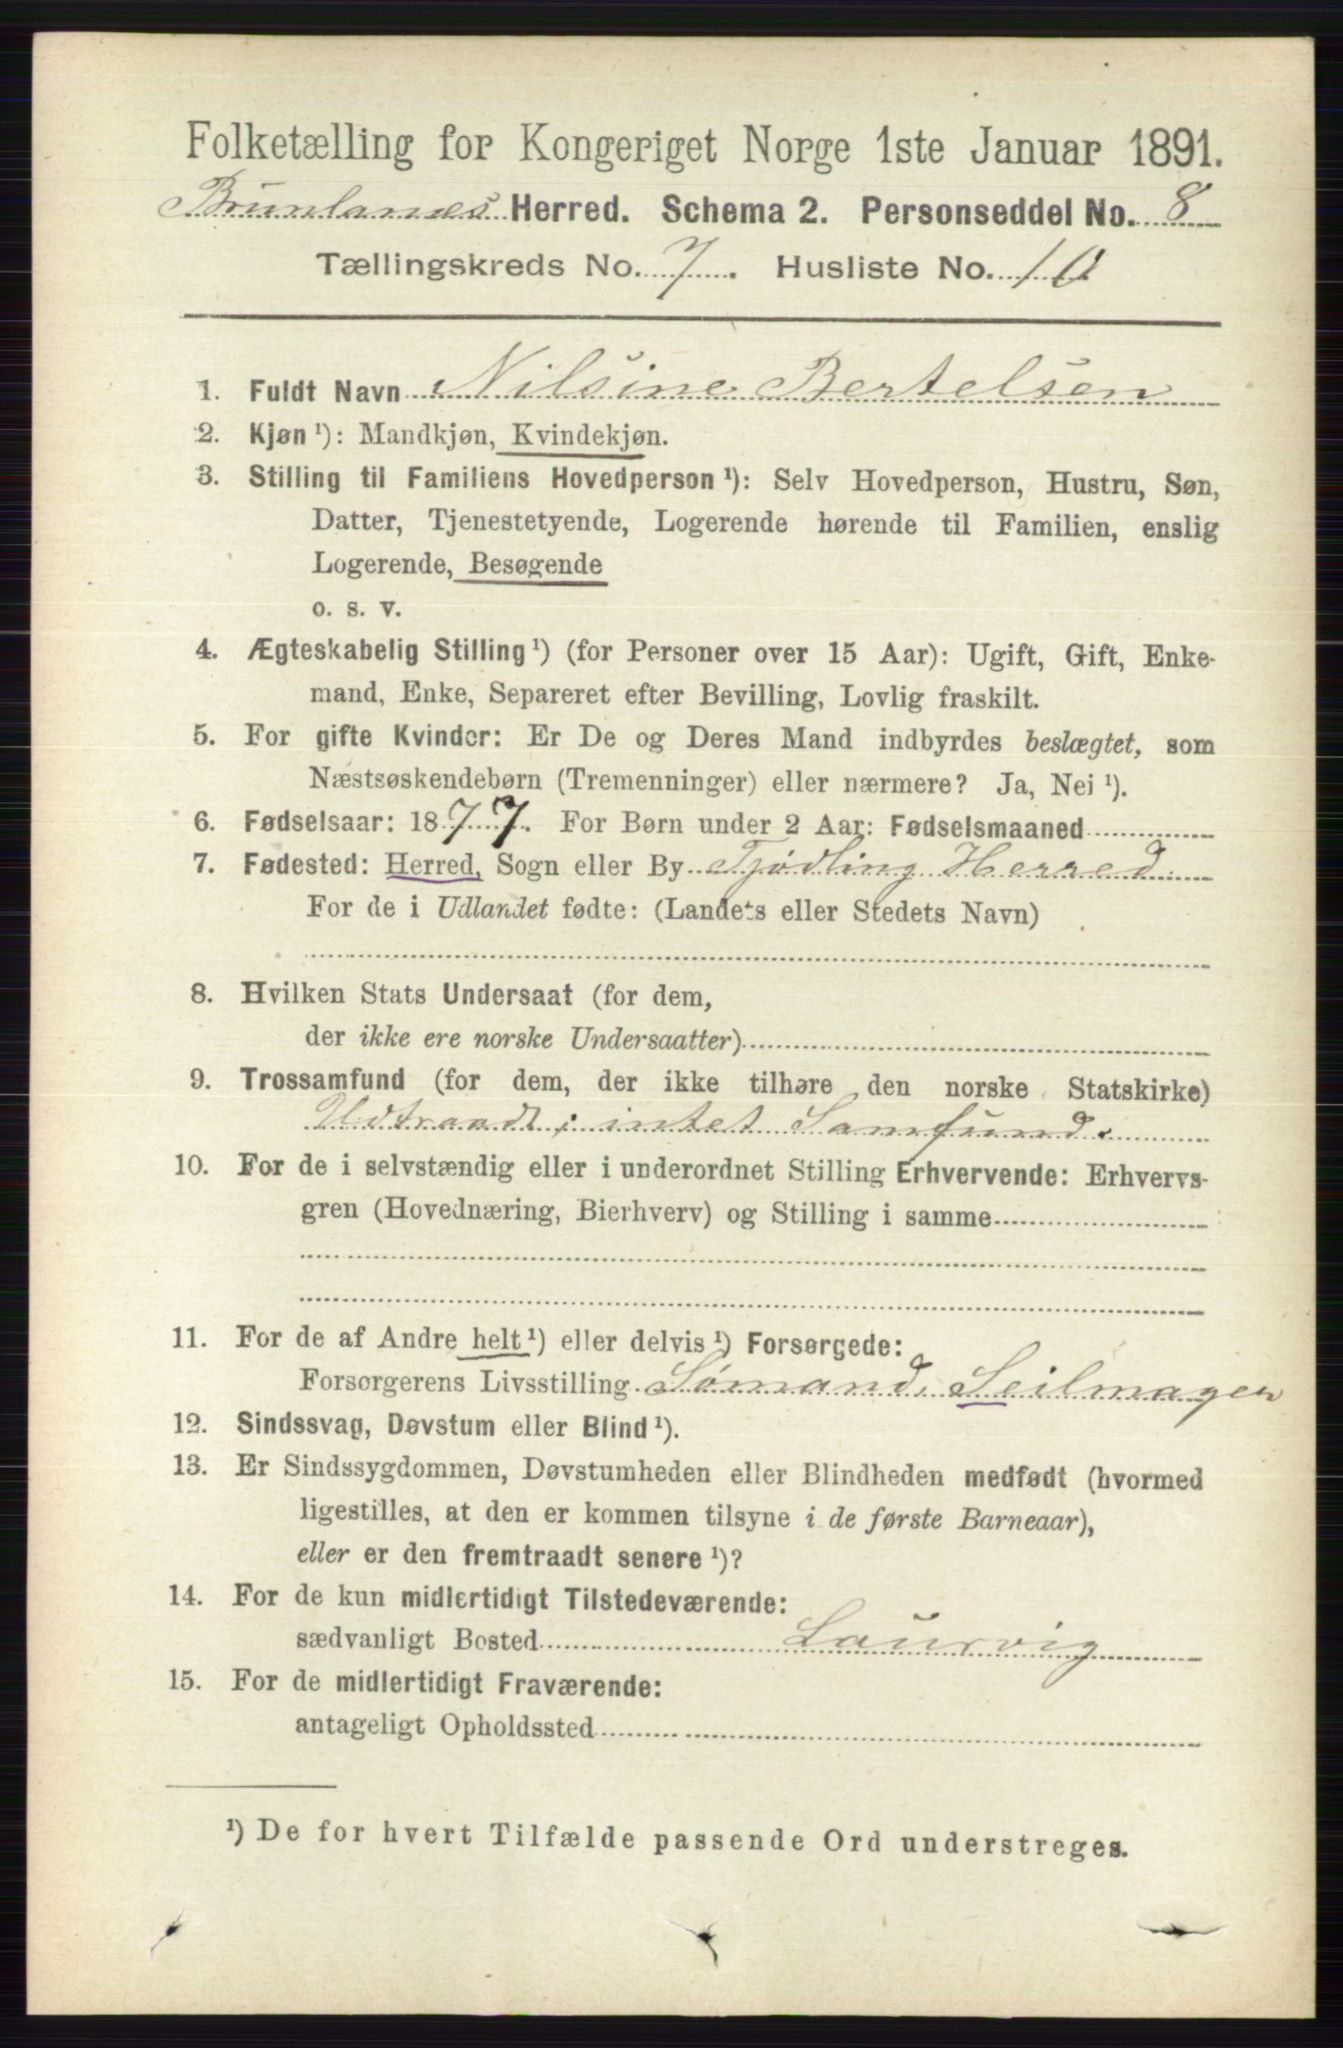 Folketælling for Kongeriget Norge 1ste Januar 1891.
Brunlanes Herred. Schema 2. Personseddel No. 8
Tællingskreds No. 7. Husliste No. 10
1. Fuldt Navn Nilsine Bertelsen
2. Kjøn ¹): Mandkjøn, Kvindekjøn.
3. Stilling til Familiens Hovedperson ¹): Selv Hovedperson, Hustru, Søn,
Datter, Tjenestetyende, Logerende hørende til Familien, enslig
Logerende, Besøgende
o. s. v.
4. Ægteskabelig Stilling ¹) (for Personer over 15 Aar): Ugift, Gift, Enke-
mand, Enke, Separeret efter Bevilling, Lovlig fraskilt.
5. For gifte Kvinder: Er De og Deres Mand indbyrdes beslægtet, som
Næstsøskendebørn (Tremenninger) eller nærmere? Ja, Nei ¹).
6. Fødselsaar: 1877. For Børn under 2 Aar: Fødselsmaaned
7. Fødested: Herred, Sogn eller By Tjødling Herred.
For de i Udlandet fødte: (Landets eller Stedets Navn)
8. Hvilken Stats Undersaat (for dem,
der ikke ere norske Undersaatter)
9. Trossamfund (for dem, der ikke tilhøre den norske Statskirke)
Udtraadt; intet Samfund.
10. For de i selvstændig eller i underordnet Stilling Erhvervende: Erhvervs-
gren (Hovednæring, Bierhverv) og Stilling i samme
11. For de af Andre helt ¹) eller delvis ¹) Forsørgede:
Forsørgerens Livsstilling Sømand, Seilmager
12. Sindssvag, Døvstum eller Blind ¹).
13. Er Sindssygdommen, Døvstumheden eller Blindheden medfødt (hvormed
ligestilles, at den er kommen tilsyne i de første Barneaar),
eller er den fremtraadt senere ¹)?
14. For de kun midlertidigt Tilstedeværende:
sædvanligt Bosted Laurvig
15. For de midlertidigt Fraværende:
antageligt Opholdssted
¹) De for hvert Tilfælde passende Ord understreges.